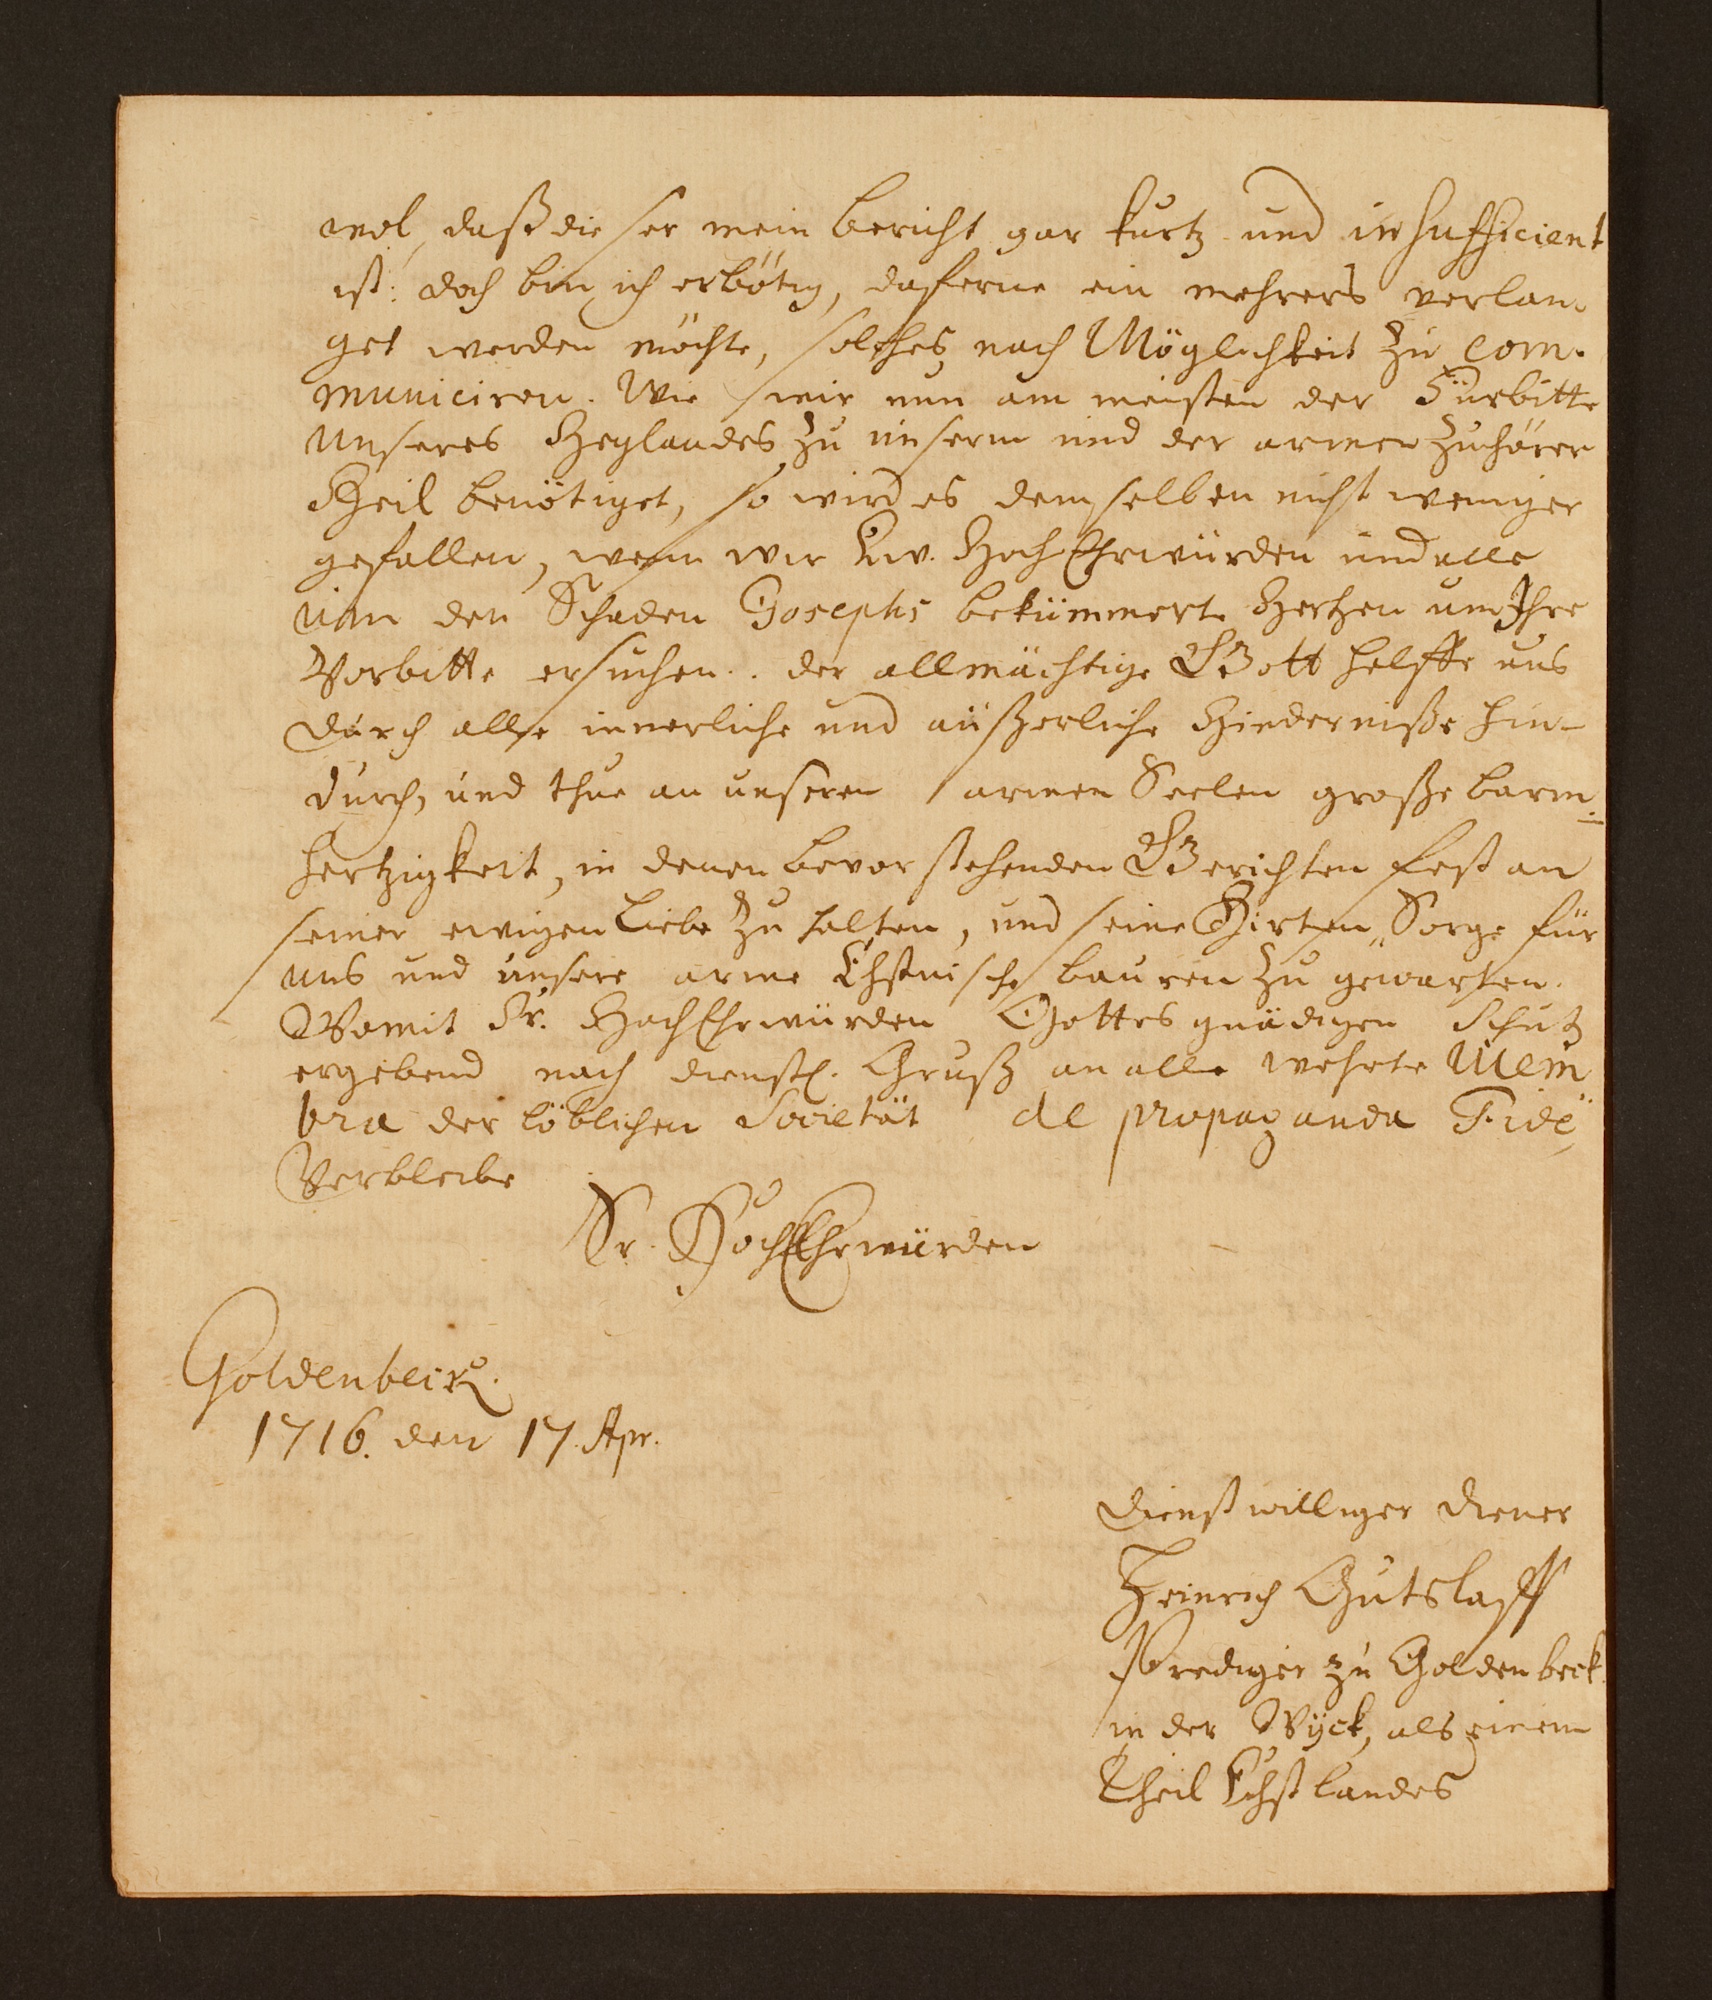 wol, daß dieser mein bericht gar kurtz und insufficient
ist: doch bin ich erbötig, daferne ein mehrers verlan-
get werden möchte, solches nach Möglichkeit zu com-
municiren. Wie wir nun am meisten der Fürbitte
unseres Heylandes zu unserm und der armen Zuhörer
Heil benötiget, so wird es demselben nicht weniger
gefallen, wenn wir Ew. HochEhrwürden und alle
um den Schaden Josephs bekümmerte Hertzen um Ihre
Vorbitte ersuchen. der allmächtige Gott helffe uns
durch alle innerliche und äußerliche Hinderniße hin-
durch, und thue an unseren armen Seelen große barm-
hertzigkeit, in denen bevorstehenden Gerichten fest an
seiner ewigen Liebe zu halten, und seine Hirten Sorge für
uns und unsere arme Ehstnische bauren zu gewarten.
Womit Sr. HochEhrwürden Gottes gnädigen Schutz
ergebend nach dienstl. Gruß an alle wehrte Mem
bra der löblichen Societät de propaganda Fide
Verbleibe
Sr. HochEhrwürden
Goldenbeck.
1716. den 17. Apr.
Dienstwilliger Diener
Heinrich Gutslaff
Prediger zu Goldenbeck
in der Wÿck, als einem
Theil Ehstlandes